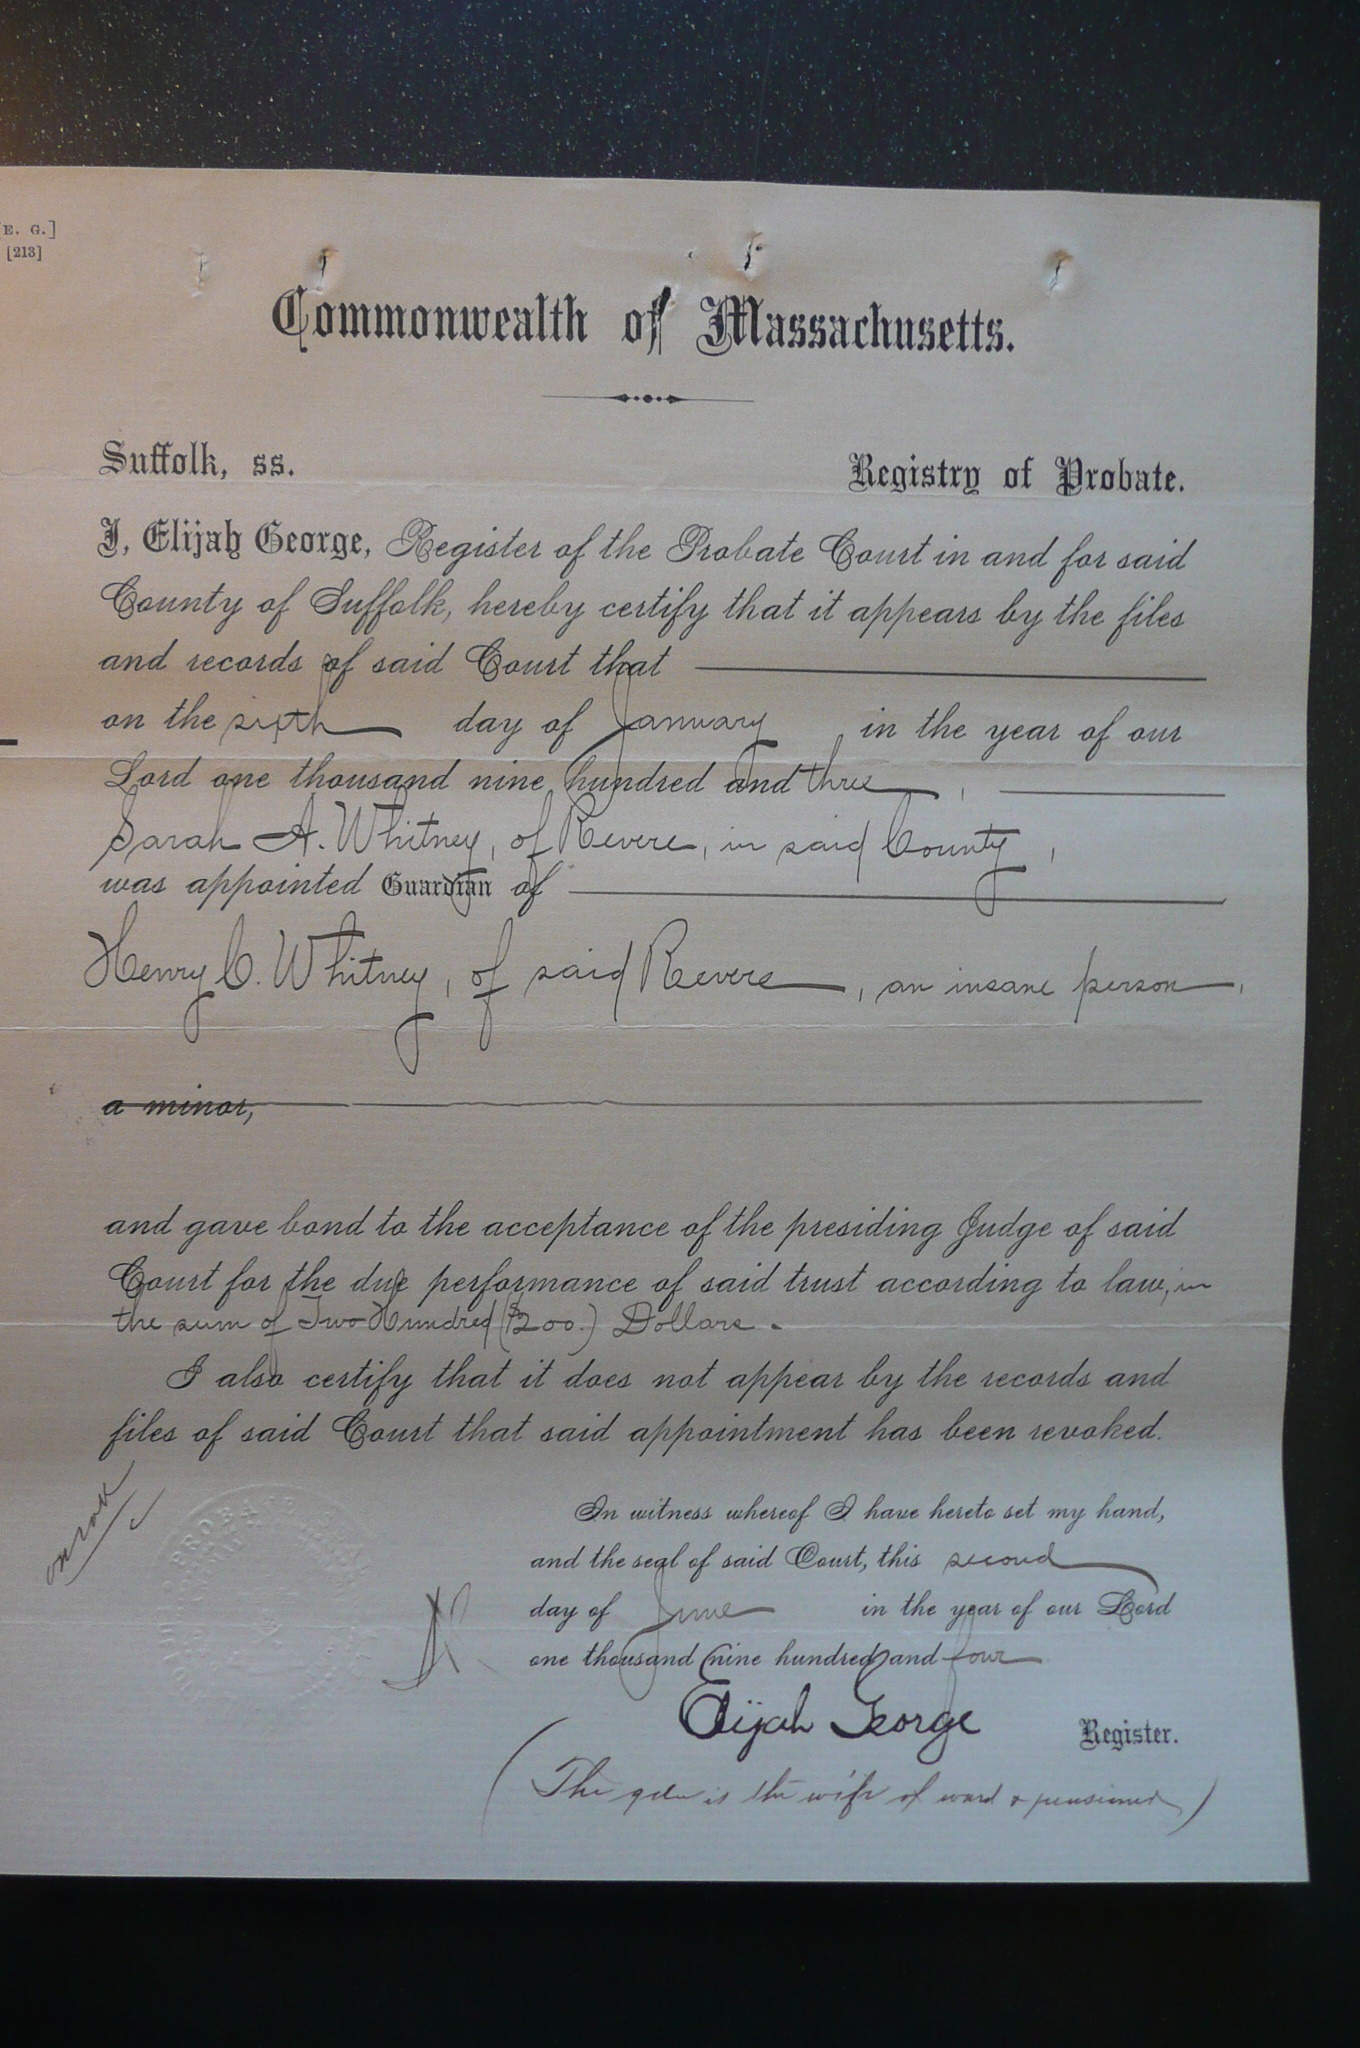 [E. G.]
[213]
Commonwealth of Massachusetts.
Suffolk, ss.
Registry of Probate.
I, Elijah George, Register of the Probate Court in and for said
County of Suffolk, hereby certify that it appears by the files
and records of said Court that
on the sixth day of January in the year of our
Lord one thousand nine hundred and three,
Sarah A. Whitney, of Revere, in said County,
was appointed Guardian of
Henry C. Whitney, of said Revere, an insane person,
a minor,
and gave bond to the acceptance of the presiding Judge of said
Court for the due performance of said trust according to law, in
the sum of Two Hundred ($200.) Dollars.
I also certify that it does not appear by the records and
files of said Court that said appointment has been revoked.
In witness whereof I have hereto set my hand,
and the seal of said Court, this second
day of June in the year of our Lord
one thousand nine hundred and four
Elijah George Register.
(The gdn is the wife of ward & pensioner)